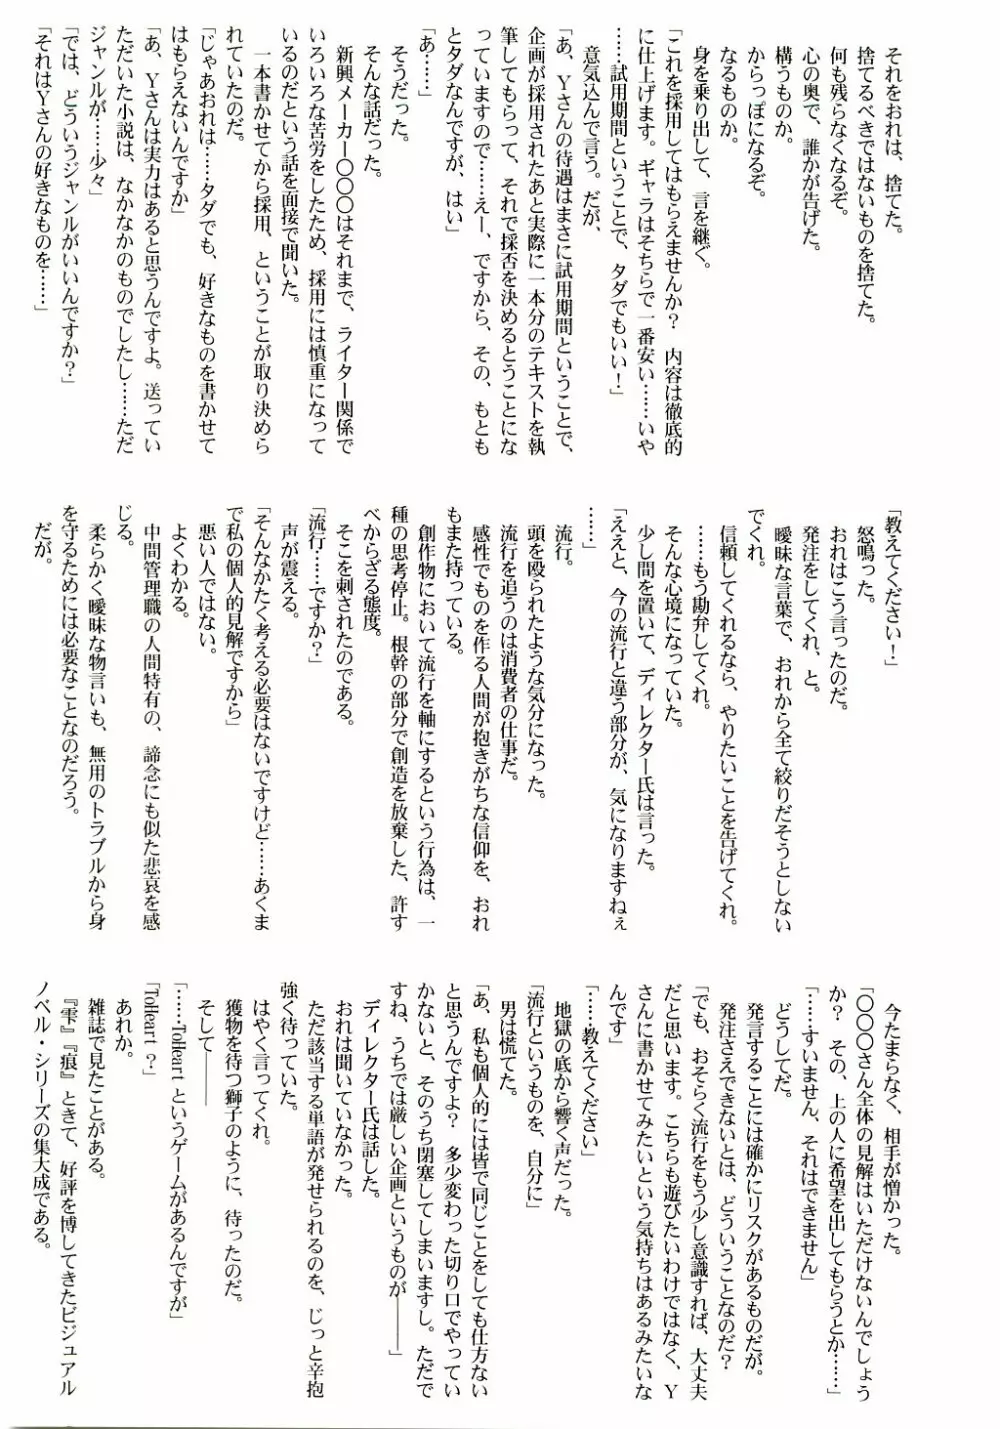 それをおれは、捨てた。
捨てるべきではないものを捨てた。
何も残らなくなるぞ。
心の奥で、誰かが告げた。
構うものか。
からっぽになるぞ。
なるものか。
身を乗り出して、言を継ぐ。
「これを採用してはもらえませんか?　内容は徹底的
に仕上げます。ギャラはそちらで一番安い……いや
……試用期間ということで、タダでもいい！」
意気込んで言う。だが、
「あ、Yさんの待遇はまさに試用期間ということで、
企画が採用されたあと実際に一本分のテキストを執
筆してもらって、それで採否を決めるとうことにな
っていますので……えー、ですから、その、もとも
とタダなんですが、はい」
「あ……」
そうだった。
そんな話だった。
新興メーカー〇〇〇はそれまで、ライター関係で
いろいろな苦労をしたため、採用には慎重になって
いるのだという話を面接で聞いた。
一本書かせてから採用、ということが取り決めら
れていたのだ。
「じゃあおれは……タダでも、好きなものを書かせて
はもらえないんですか」
「あ、Yさんは実力はあると思うんですよ。送ってい
ただいた小説は、なかなかのものでしたし……ただ
ジャンルが……少々」
「では、どういうジャンルがいいんですか？」
「それはYさんの好きなものを……」
「教えてください！」
怒鳴った。
おれはこう言ったのだ。
発注をしてくれ、と。
曖昧な言葉で、おれから全て絞りだそうとしない
でくれ。
信頼してくれるなら、やりたいことを告げてくれ。
……もう勘弁してくれ。
そんな心境になっていた。
少し間を置いて、ディレクター氏は言った。
「ええと、今の流行と違う部分が、気になりますねぇ
……」
流行。
頭を殴られたような気分になった。
流行を追うのは消費者の仕事だ。
感性でものを作る人間が抱きがちな信仰を、おれ
もまた持っている。
創作物において流行を軸にするという行為は、一
種の思考停止。根幹の部分で創造を放棄した、許す
べからざる態度。
そこを刺されたのである。
「流行……ですか？」
声が震える。
「そんなかたく考える必要はないですけど……あくま
で私の個人的見解ですから」
悪い人ではない。
よくわかる。
中間管理職の人間特有の、諦念にも似た悲哀を感
じる。
柔らかく曖昧な物言いも、無用のトラブルから身
を守るためには必要なことなのだろう。
だが。
今たまらなく、相手が憎かった。
「〇〇〇さん全体の見解はいただけないんでしょう
か？　その、上の人に希望を出してもらうとか……」
「……すいません、それはできません」
どうしてだ。
発言することには確かにリスクがあるものだが。
発注さえできないとは、どういうことなのだ？
「でも、おそらく流行をもう少し意識すれば、大丈夫
だと思います。こちらも遊びたいわけではなく、Y
さんに書かせてみたいという気持ちはあるみたいな
んです」
「……教えてください」
地獄の底から響く声だった。
男は慌てた。
「流行というものを、自分に」
「あ、私も個人的には皆で同じことをしても仕方ない
と思うんですよ？　多少変わった切り口でやってい
かないと、そのうち閉塞してしまいますし。ただで
すね、うちでは厳しい企画というものが――」
ディレクター氏は話した。
おれは聞いていなかった。
ただ該当する単語が発せられるのを、じっと辛抱
強く待っていた。
はやく言ってくれ。
獲物を待つ獅子のように、待ったのだ。
そして――
「……ToHeart というゲームがあるんですが」
「ToHeart ？」
あれか。
雑誌で見たことがある。
『雫』『痕』ときて、好評を博してきたビジュアル
ノベル・シリーズの集大成である。